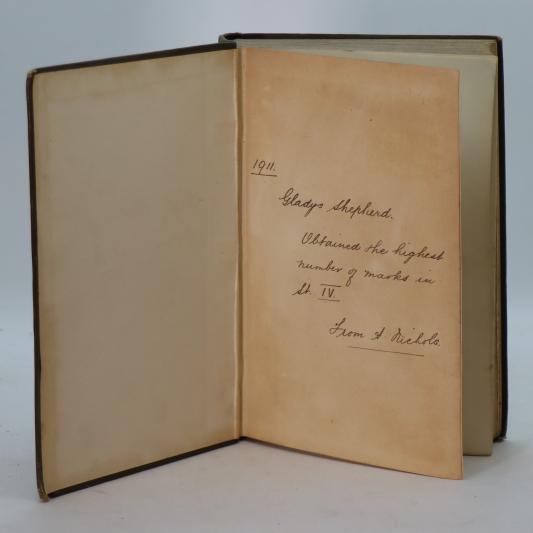 1911.
Gladys Shepherd.
Obtained the highest
number of marks in
St. IV.
From A Nichols.